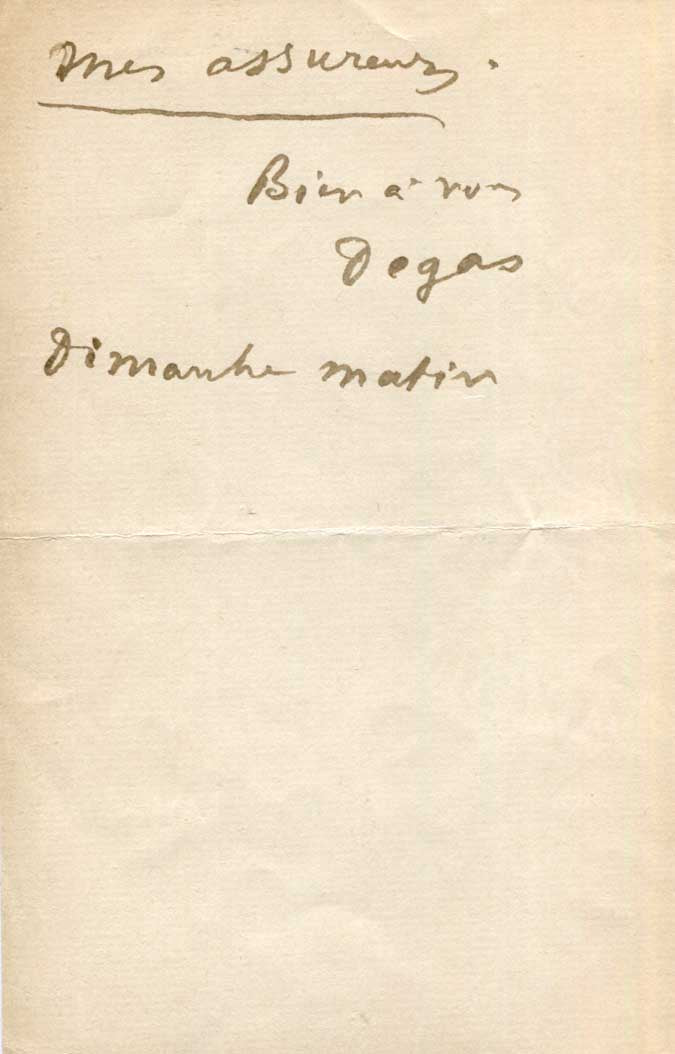 mes assureurs.
Bien à vous
Degas
Dimanche matin